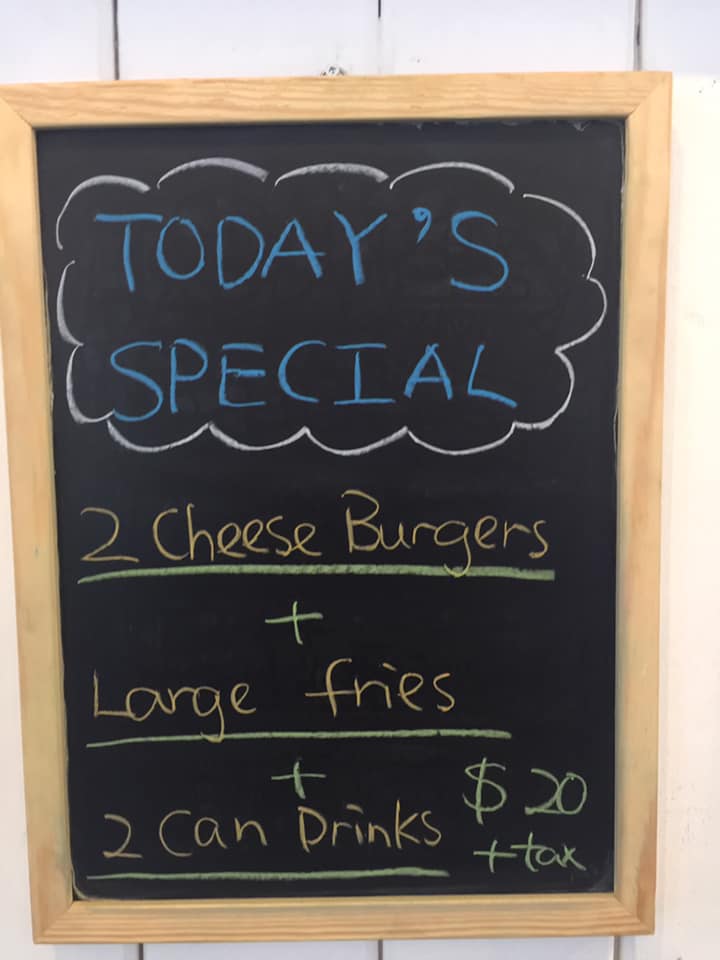 TODAY'S
SPECIAL
2 Cheese Burgers
+
Large fries
+
2 Can Drinks
$20
+tax